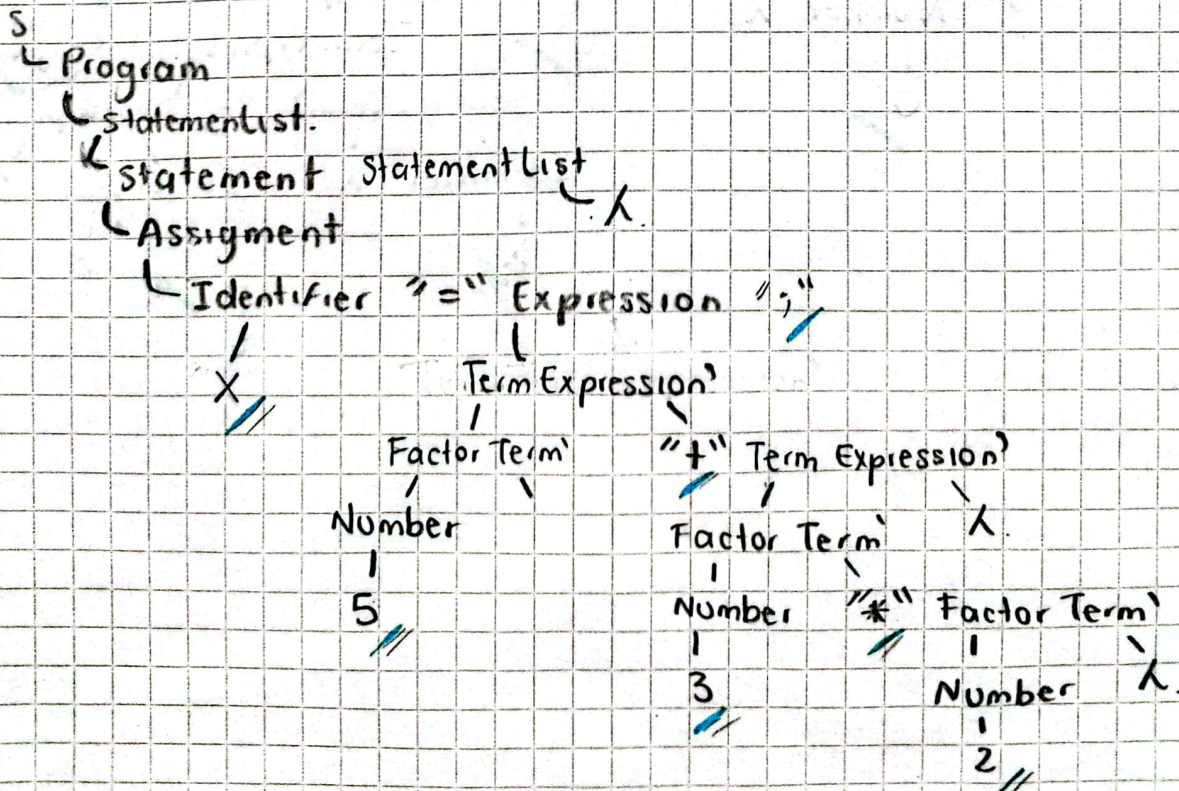 S
Program
StatemenList.
Statement StatementList
λ.
Assigment
Identifier "=" Expression ";"
X
Term Expression'
Factor Term' "+" Term Expression'
Number Factor Term' λ.
5 Number "*" Factor Term'
3 Number λ.
2